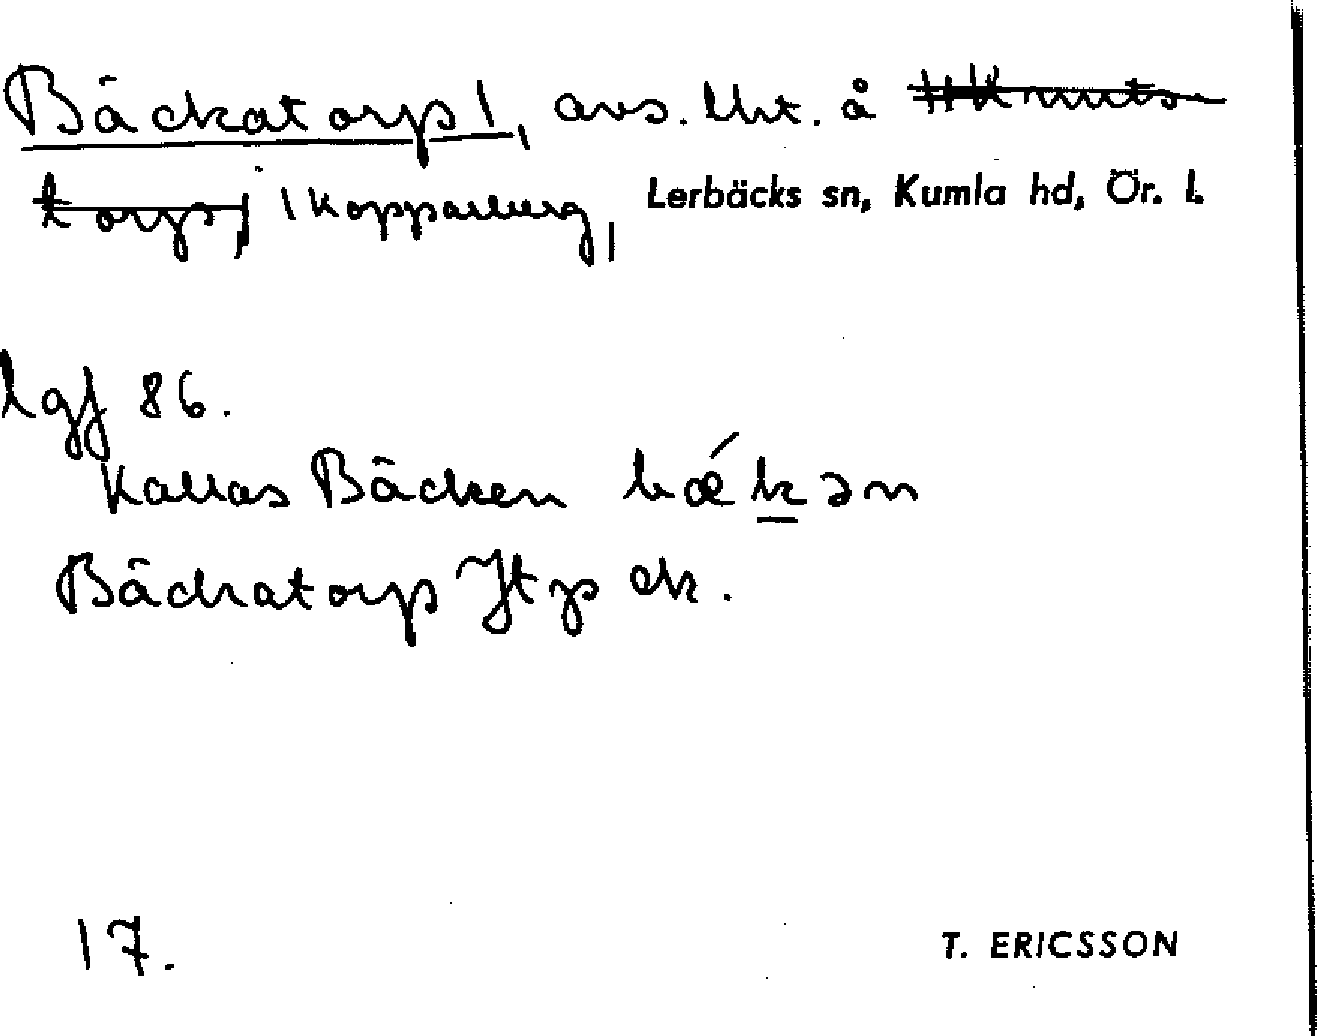 Bäckatorp 1, avs. lht. å
torp, 1 Kopparberg, Lerbäcks sn, Kumla hd, Ör. l.
lgf 86.
Kallas Bäcken bǽkən
Bäckatorp Jtp ek.
17.
T. ERICSSON